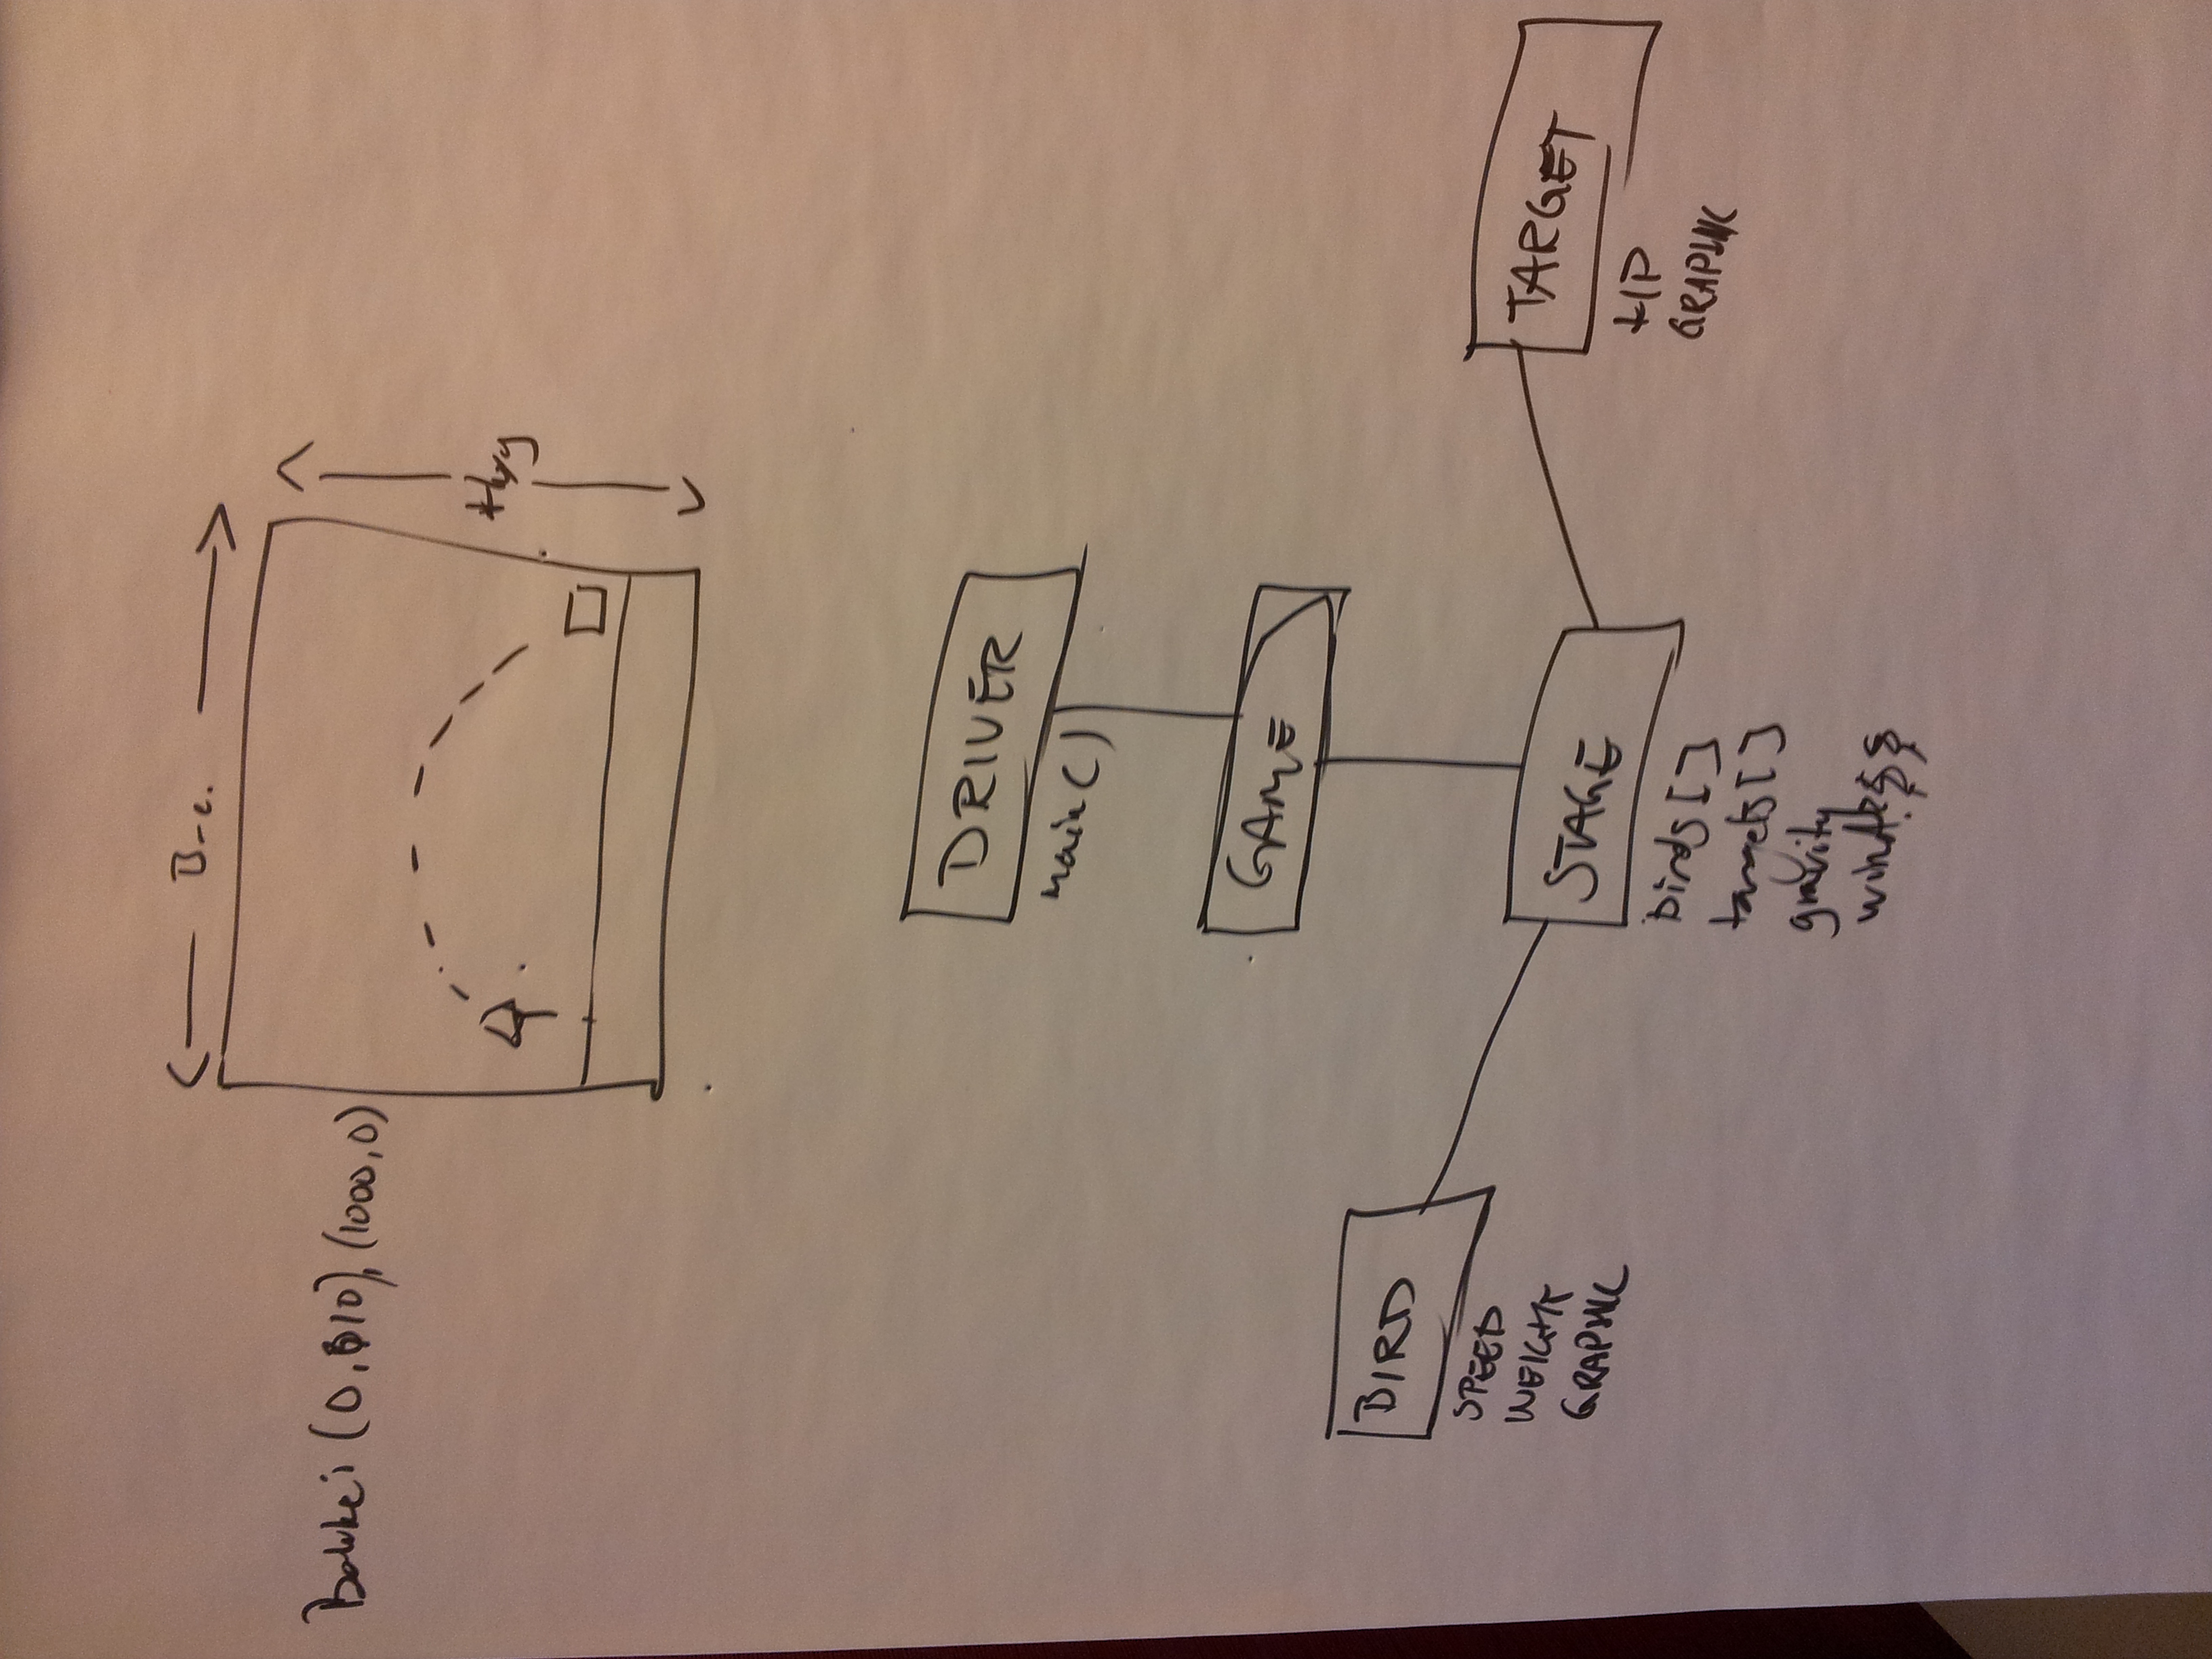 (0,10), (1000,0)
DRIVER
main()
GAME
BIRD
SPEED
WEIGHT
GRAPHIC
STAGE
birds[]
targets[]
gravity
TARGET
HP
GRAPHIC